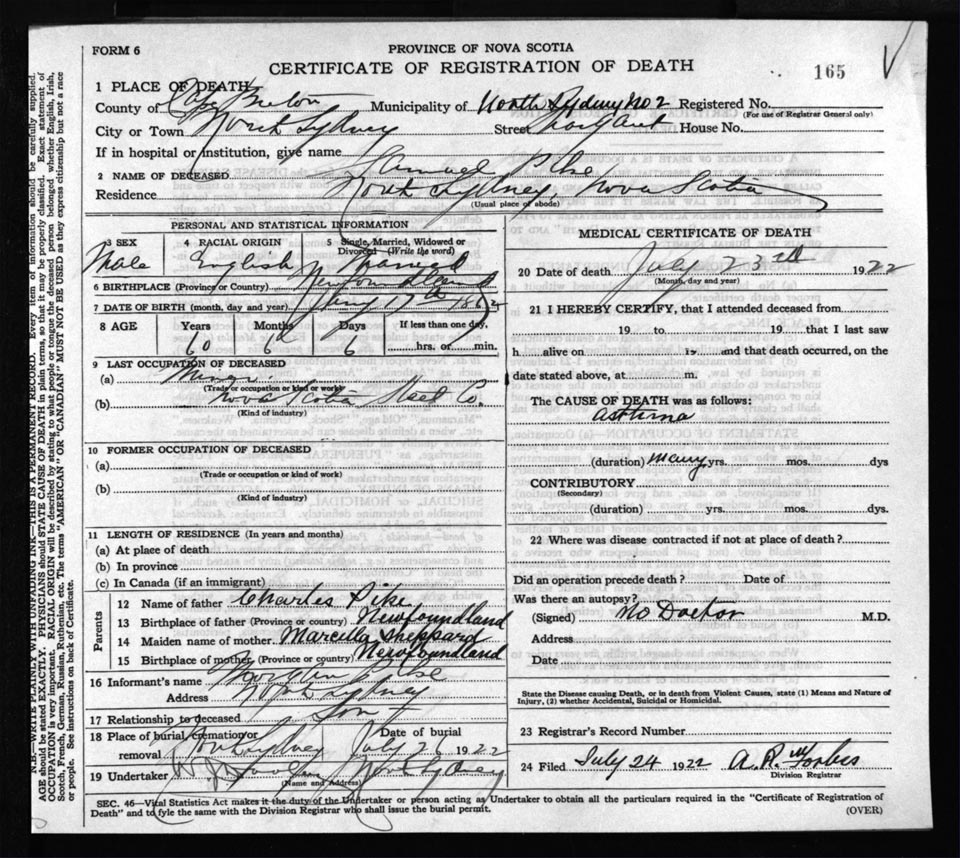 FORM 6
PROVINCE OF NOVA SCOTIA
CERTIFICATE OF REGISTRATION OF DEATH
165
1 PLACE OF DEATH
County of Cape Breton Municipality of North Sydney No 2 Registered No.
(For use of Registrar General only)
City or Town North Sydney Street House No.
If in hospital or institution, give name
2 NAME OF DECEASED Samuel Pike
Residence North Sydney, Nova Scotia
(Usual place of abode)
PERSONAL AND STATISTICAL INFORMATION
3 SEX Male
4 RACIAL ORIGIN English
5 Single, Married, Widowed or Divorced (Write the word) Married
6 BIRTHPLACE (Province or Country) Newfoundland
7 DATE OF BIRTH (month, day and year) 17th 1862
8 AGE Years Months Days If less than one day,
60 6 6 hrs. or min.
9 LAST OCCUPATION OF DECEASED
(a) Miner
(Trade or occupation or kind of work)
(b) Nova Scotia Steel Co.
(Kind of industry)
10 FORMER OCCUPATION OF DECEASED
(a)
(Trade or occupation or kind of work)
(b)
(Kind of industry)
11 LENGTH OF RESIDENCE (In years and months)
(a) At place of death
(b) In province
(c) In Canada (if an immigrant)
Parents
12 Name of father Charles Pike
13 Birthplace of father (Province or country) Newfoundland
14 Maiden name of mother Marcella Sheppard
15 Birthplace of mother (Province or country) Newfoundland
16 Informant's name Pike
Address North Sydney
17 Relationship to deceased Son
18 Place of burial, cremation or removal North Sydney Date of burial July 26 1922
19 Undertaker North Sydney
(Name and Address)
MEDICAL CERTIFICATE OF DEATH
20 Date of death July 23rd 1922
(Month, day and year)
21 I HEREBY CERTIFY, that I attended deceased from
19 to 19 that I last saw
h alive on 19 and that death occurred, on the
date stated above, at m.
The CAUSE OF DEATH was as follows:
asthma
(duration) many yrs. mos. dys
CONTRIBUTORY
(Secondary)
(duration) yrs. mos. dys.
22 Where was disease contracted if not at place of death?
Did an operation precede death? Date of
Was there an autopsy?
(Signed) No Doctor M.D.
Address
Date
State the Disease causing Death, or in death from Violent Causes, state (1) Means and Nature of
Injury, (2) whether Accidental, Suicidal or Homicidal.
23 Registrar's Record Number
24 Filed July 24 1922 A. R. Forbes
Division Registrar
SEC. 46—Vital Statistics Act makes it the duty of the Undertaker or person acting as Undertaker to obtain all the particulars required in the "Certificate of Registration of
Death" and to fyle the same with the Division Registrar who shall issue the burial permit.
(OVER)
N.B.—WRITE PLAINLY WITH UNFADING INK—THIS IS A PERMANENT RECORD. Every item of information should be carefully supplied.
AGE should be stated EXACTLY. PHYSICIANS should STATE CAUSE OF DEATH in plain terms, so that it may be properly classified. Exact statement of
OCCUPATION is very important. RACIAL ORIGIN will be described by stating to what people or tongue the deceased person belonged whether English, Irish,
Scotch, French, German, Russian, Ruthenian, etc. The terms "AMERICAN" OR "CANADIAN" MUST NOT BE USED as they express citizenship but not a race
or people. See instructions on back of Certificate.